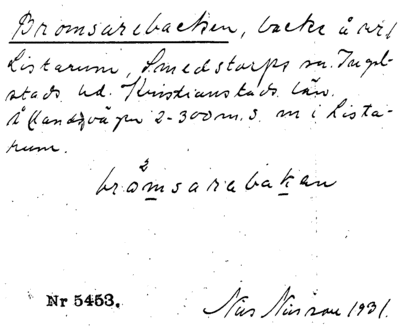 Bromsarebacken, backe å nr1
Listarum, Smedstorps sn. Ingel-
stads hd. Kristianstads län.
Å landsvägen 2-300 m. S. m i Lista-
rum.
2
brömsarabakan
Nr 5453.
Nils Nilsson 1931.